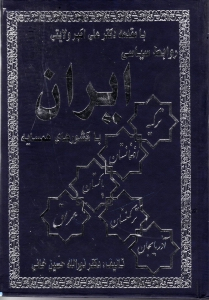 با مقدمه دکتر علی اکبر ولایتی
روابط سیاسی
ایران
با کشورهای همسایه
ترکیه
افغانستان
پاکستان
ترکمنستان
آذربایجان
تالیف: دکتر نورالله